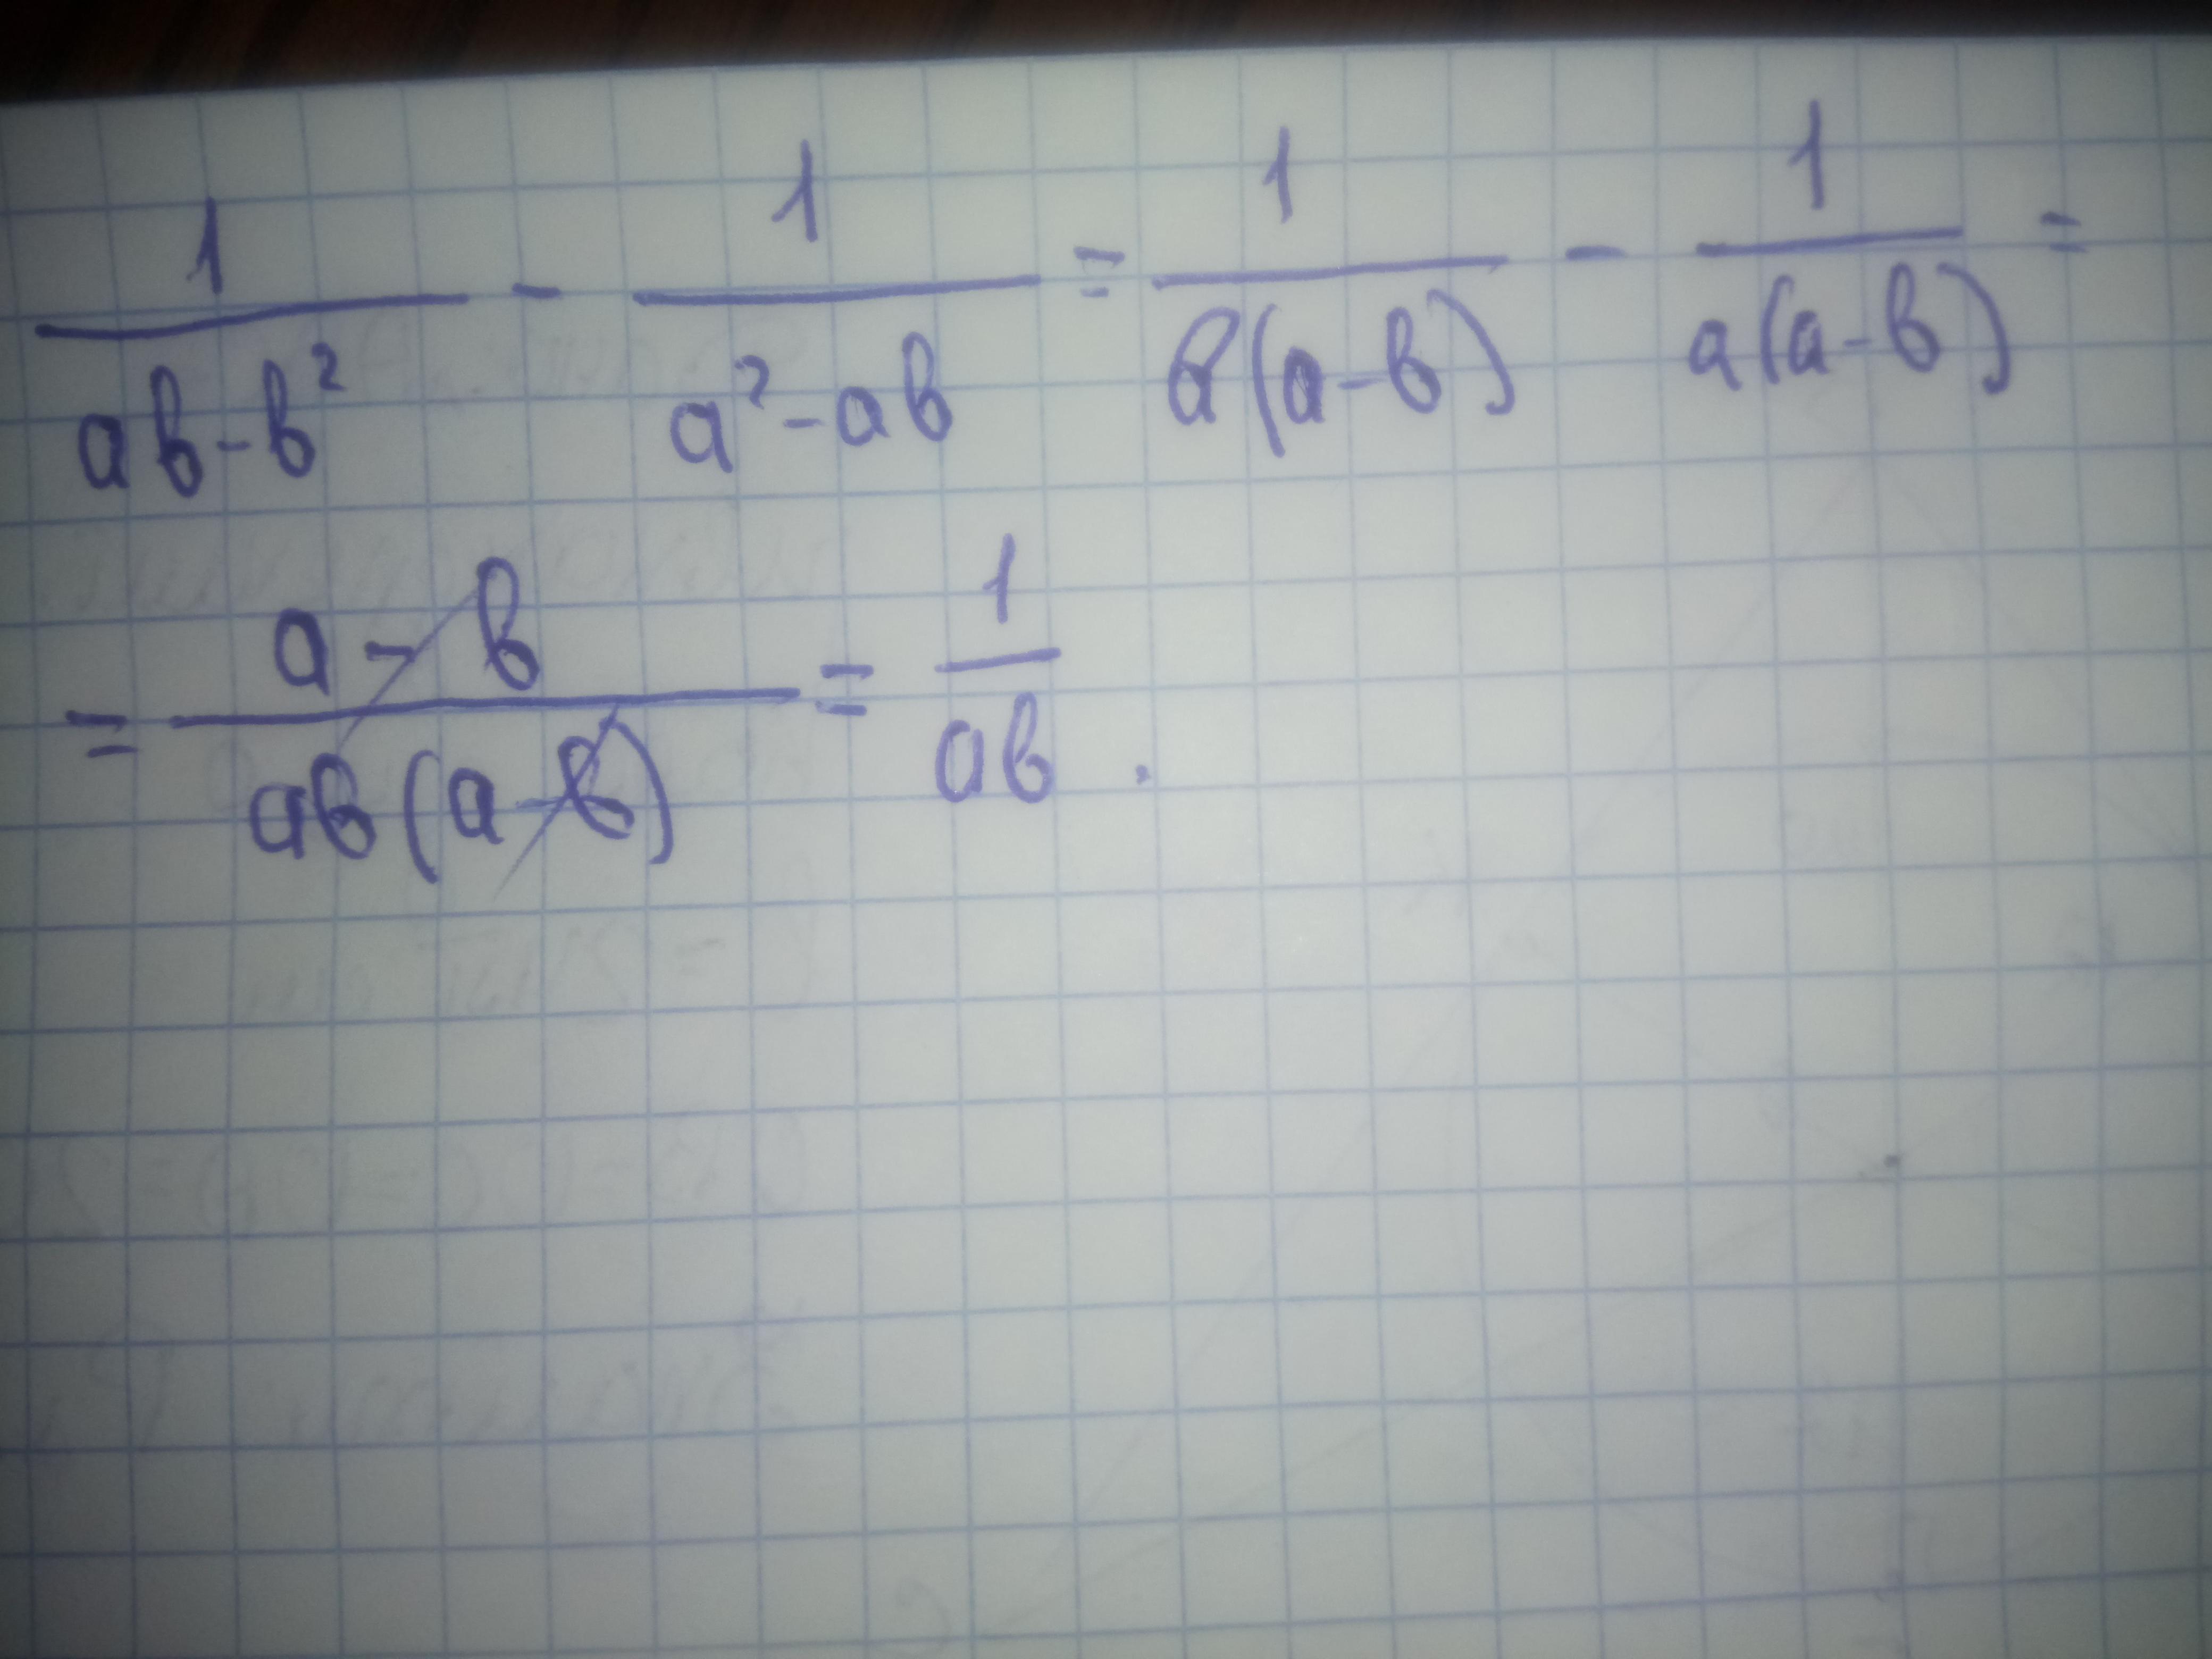 1/(ab-b²) - 1/(a²-ab) = 1/(b(a-b)) - 1/(a(a-b)) =
= (a-b)/(ab(a-b)) = 1/(ab).